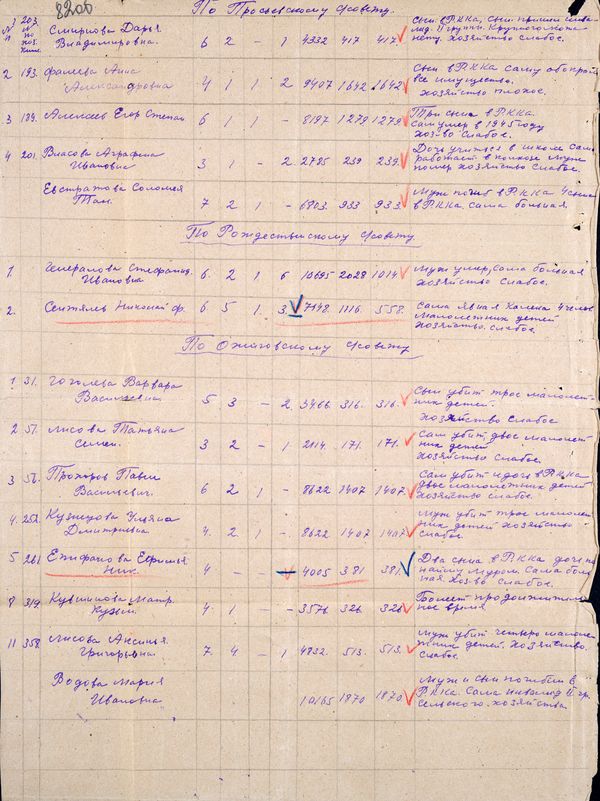 8206
По Просьевскому совету.
№ п/п
203 Смирнова Дарья Владимировна. 6 2 - 1 4332 417 417 Сын в РККА, сын инвалид II группы. Хозяйство слабое.
2 193. Анна Александровна 4 1 1 2 9407 1642 1642 Сын в РККА саму обокрали все имущество. хозяйство плохое.
3 184. Алексеев Егор Степан 6 1 1 - 8197 1279 1279 Три сына в РККА. сам умер в 194 году хоз-во слабое.
4 201. Власова Аграфена Ивановна 3 1 - 2 2785 239 239 Дочь учится в школе сама работает в колхозе муж помер хозяйство слабое.
Евстратова Соломея 7 2 1 - 6803. 933 933. Муж погиб в РККА 4 сына в РККА. сама больная
По Рождественскому совету
1. Генералова Стефанида. Ивановна 6. 2 1 6 10695 2028 1014 Муж умер, сама больная хозяйство слабое.
2. Николай ф. 6 5 1. 3. 7148. 1116. 558. Сама 4 член малолетних детей хозяйство слабое.
По Ожиговскому совету
1 31. Гоголева Варвара Васильевна 5 3 - 2. 3466. 316. 316. Сын убит трое малолетних детей. хозяйство слабое
2 51. Лисова Татьяна Семен. 3 2 - 1 2114. 171. 171. Сам убит двое малолетних детей хозяйство слабое.
3 56. Прохоров Павел Васильевич. 6 2 1 - 8622 1407 1407. Сам убит и дочь в РККА двое малолетних детей хозяйство слабое.
4. 252. Кузнецова Ульяна Дмитриевна 4 2 1 - 8622 1407 1407 Муж убит трое малолетних детей хозяйство слабое.
5 261 Епифанова Ник. 4 - - - 4005 381 381. Два сына в РККА дочь по найму Муром. Сама больная. хоз-во слабое.
8 319. Кувшинова Матр. Кузьм. 4. 1 - - 3576 326 326 Болеет продолжительное время
11 358. Лисова Аксинья Григорьевна. 7. 4 - 1 4832. 513. 513. Муж убит четверо малолетних детей. хозяйство. слабое.
Водова Мария Ивановна 10165 1870 1870 Муж и сын погибли в РККА. Сама инвалид II гр. сельского. хозяйства